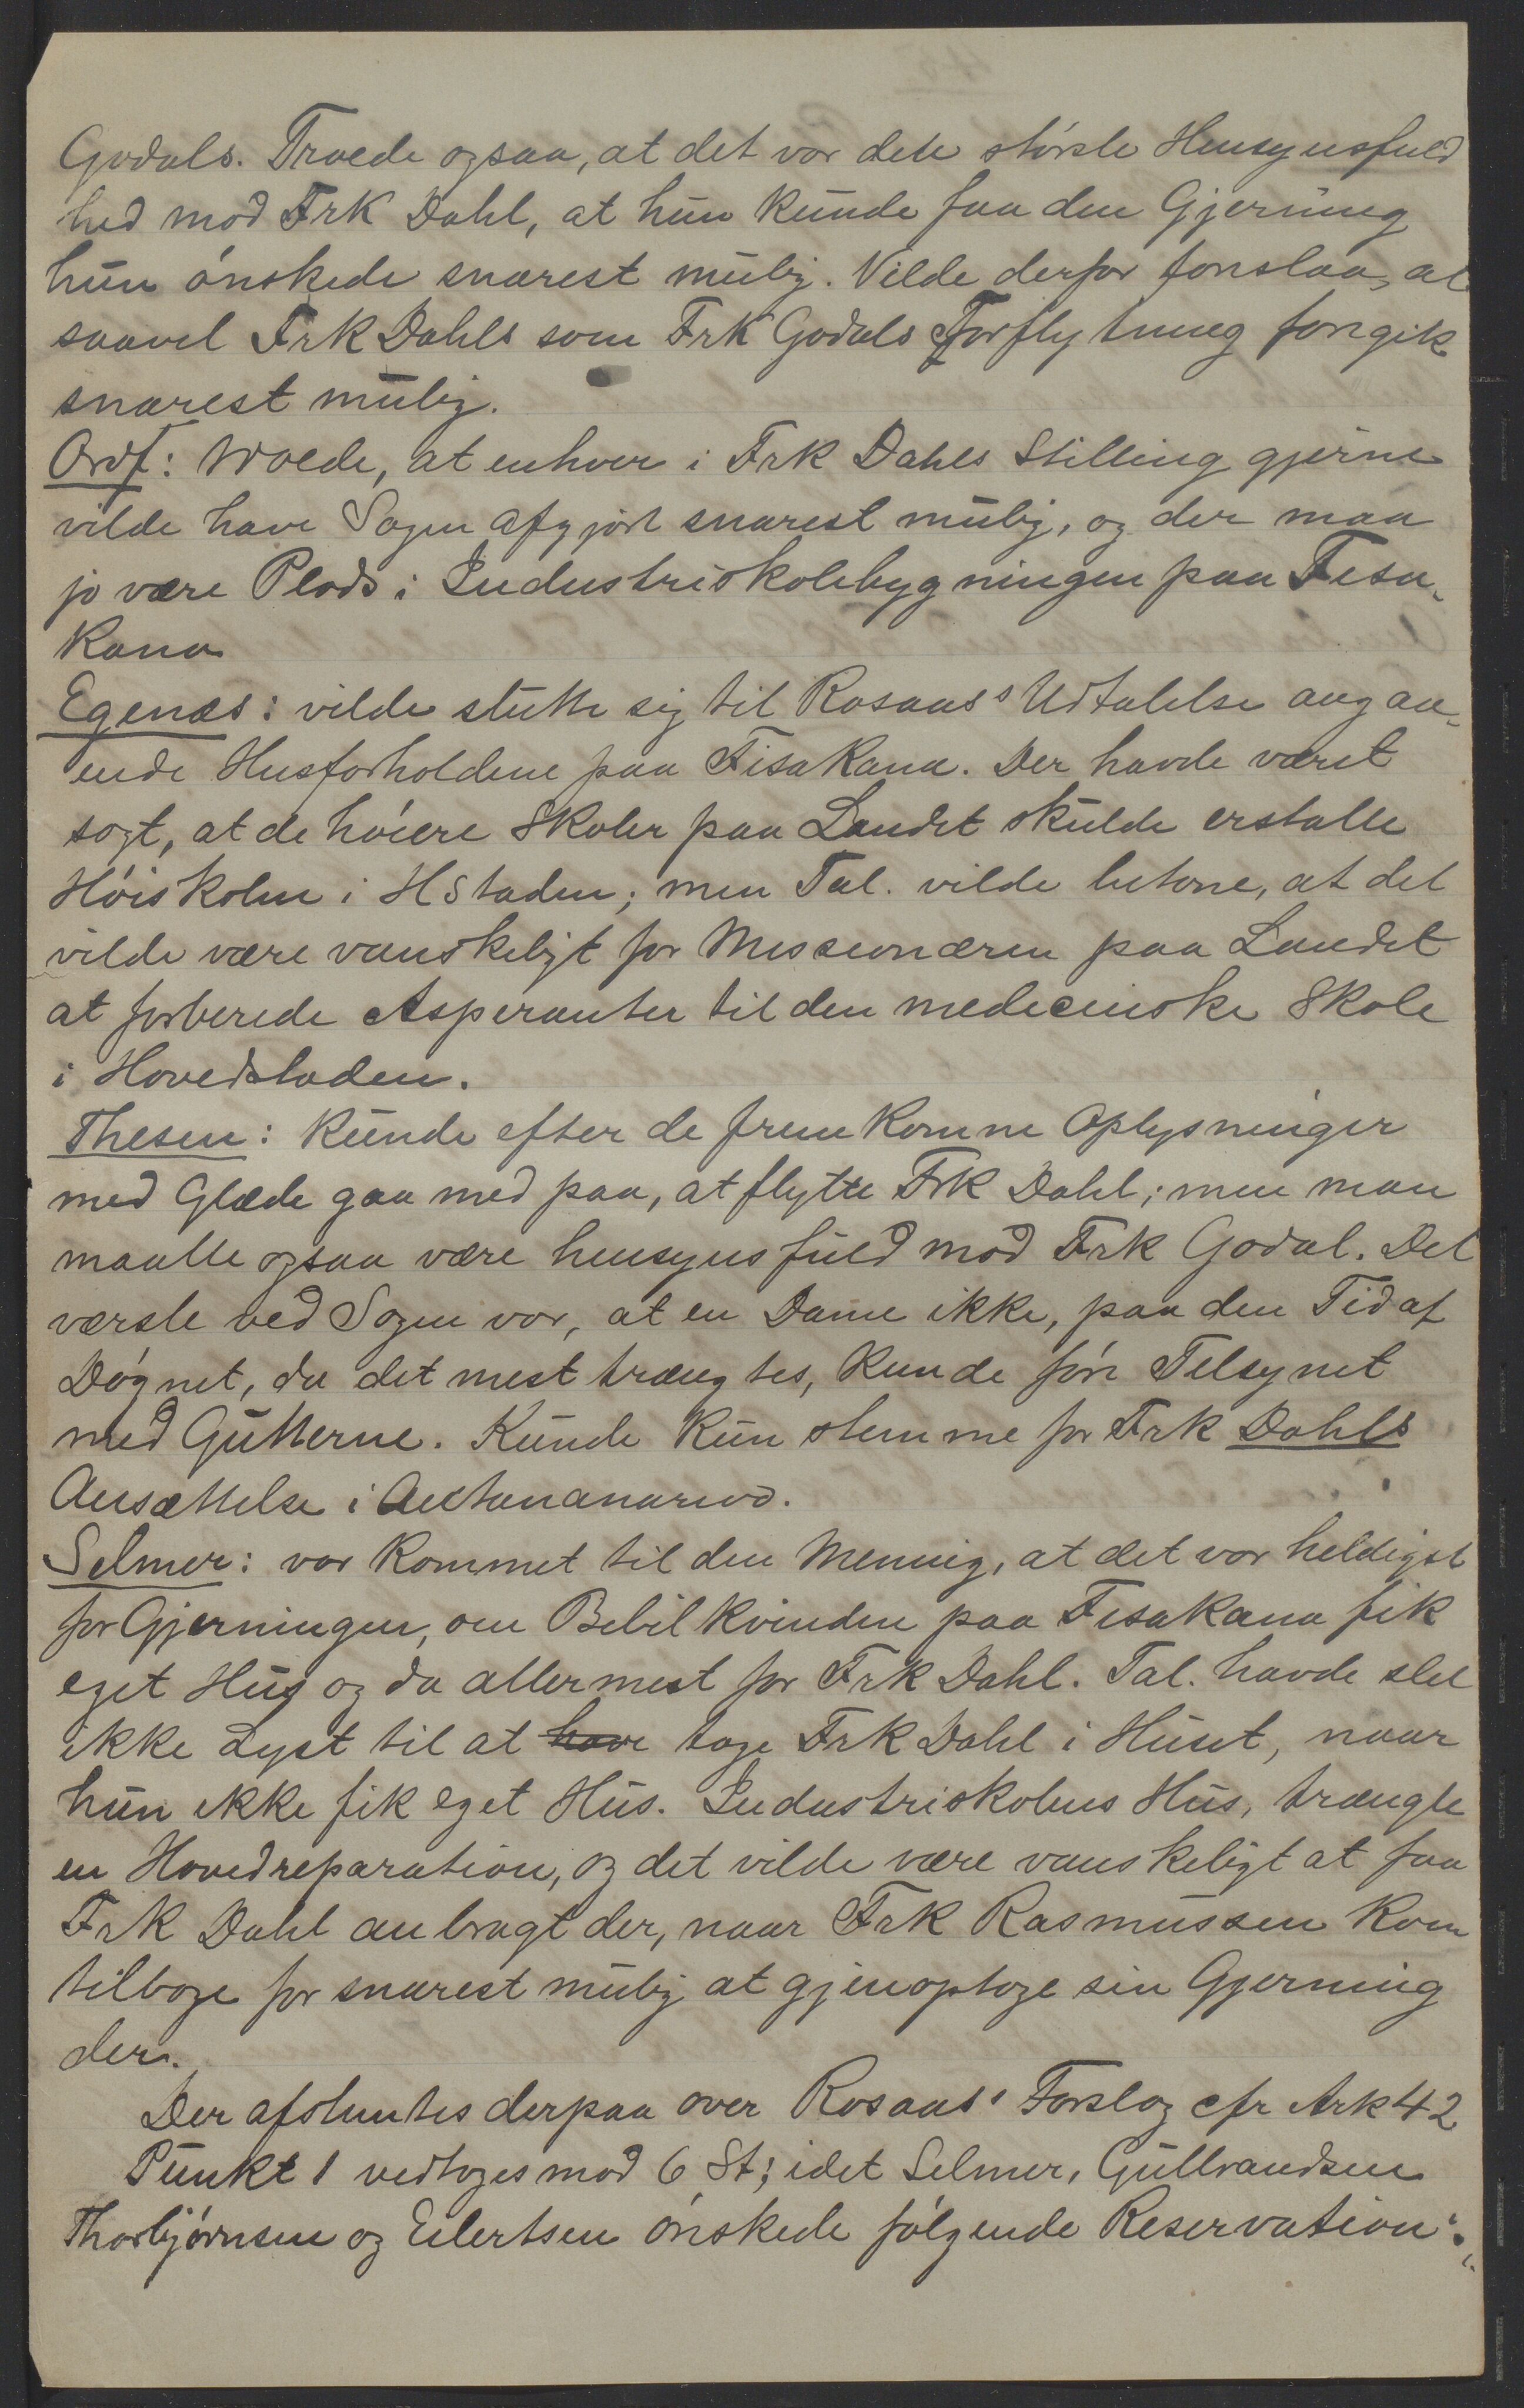 Godals. Troede ogsaa, at det var den største Hensynsfuld
hed mod Frk Dahl, at hun kunde faa den Gjerning
hun ønskede snarest mulig. Vilde derfor foreslaa, at
saavel Frk Dahls som Frk Godals Forflytning foregik
snarest mulig.
Ordf: troede, at enhver i Frk Dahls Stilling gjerne
vilde have Sagen afgjort snarest mulig, og der maa
jo være Plads i Industriskolebygningen paa Fisa-
kana
Egenæs: vilde støtte sig til Rosaas's Udtalelse angaa-
ende Husforholdene paa Fisakana. Der havde været
sagt, at de høiere Skoler paa Landet skulde erstatte
Høiskolen i HStaden; men Tal. vilde betone, at det
vilde være vanskeligt for Missionæren paa Landet
at forberede Aspiranter til den medicinske Skole
i Hovedstaden.
Thesen: kunde efter de fremkomne Oplysninger
med Glæde gaa med paa, at flytte Frk Dahl; men man
maatte ogsaa være hensynsfuld mod Frk Godal. Det
værste ved Sagen var, at en Dame ikke, paa den Tid af
Døgnet, da det mest trængtes, kunde føre Tilsynet
med Gutterne. Kunde kun stemme for Frk Dahls
Ansættelse i Antananarivo.
Selmer: var kommet til den Mening, at det var heldigst
for Gjerningen, om Bibelkvinden paa Fisakana fik
eget Hus og da allermest for Frk Dahl. Tal. havde slet
ikke Lyst til at have tage Frk Dahl i Huset, naar
hun ikke fik eget Hus. Industriskolens Hus, trængte
en Hovedreparation, og det vilde være vanskeligt at faa
Frk Dahl anbragt der, naar Frk Rasmussen kom
tilbage for snarest mulig at gjenoptage sin Gjerning
der.
Der afstemtes derpaa over Rosaas' Forslag cfr Ark 42
Punkt 1 vedtoges mod 6 St; idet Selmer, Gulbrandsen
Thorbjørnsen og Eilertsen ønskede følgende Reservation:"